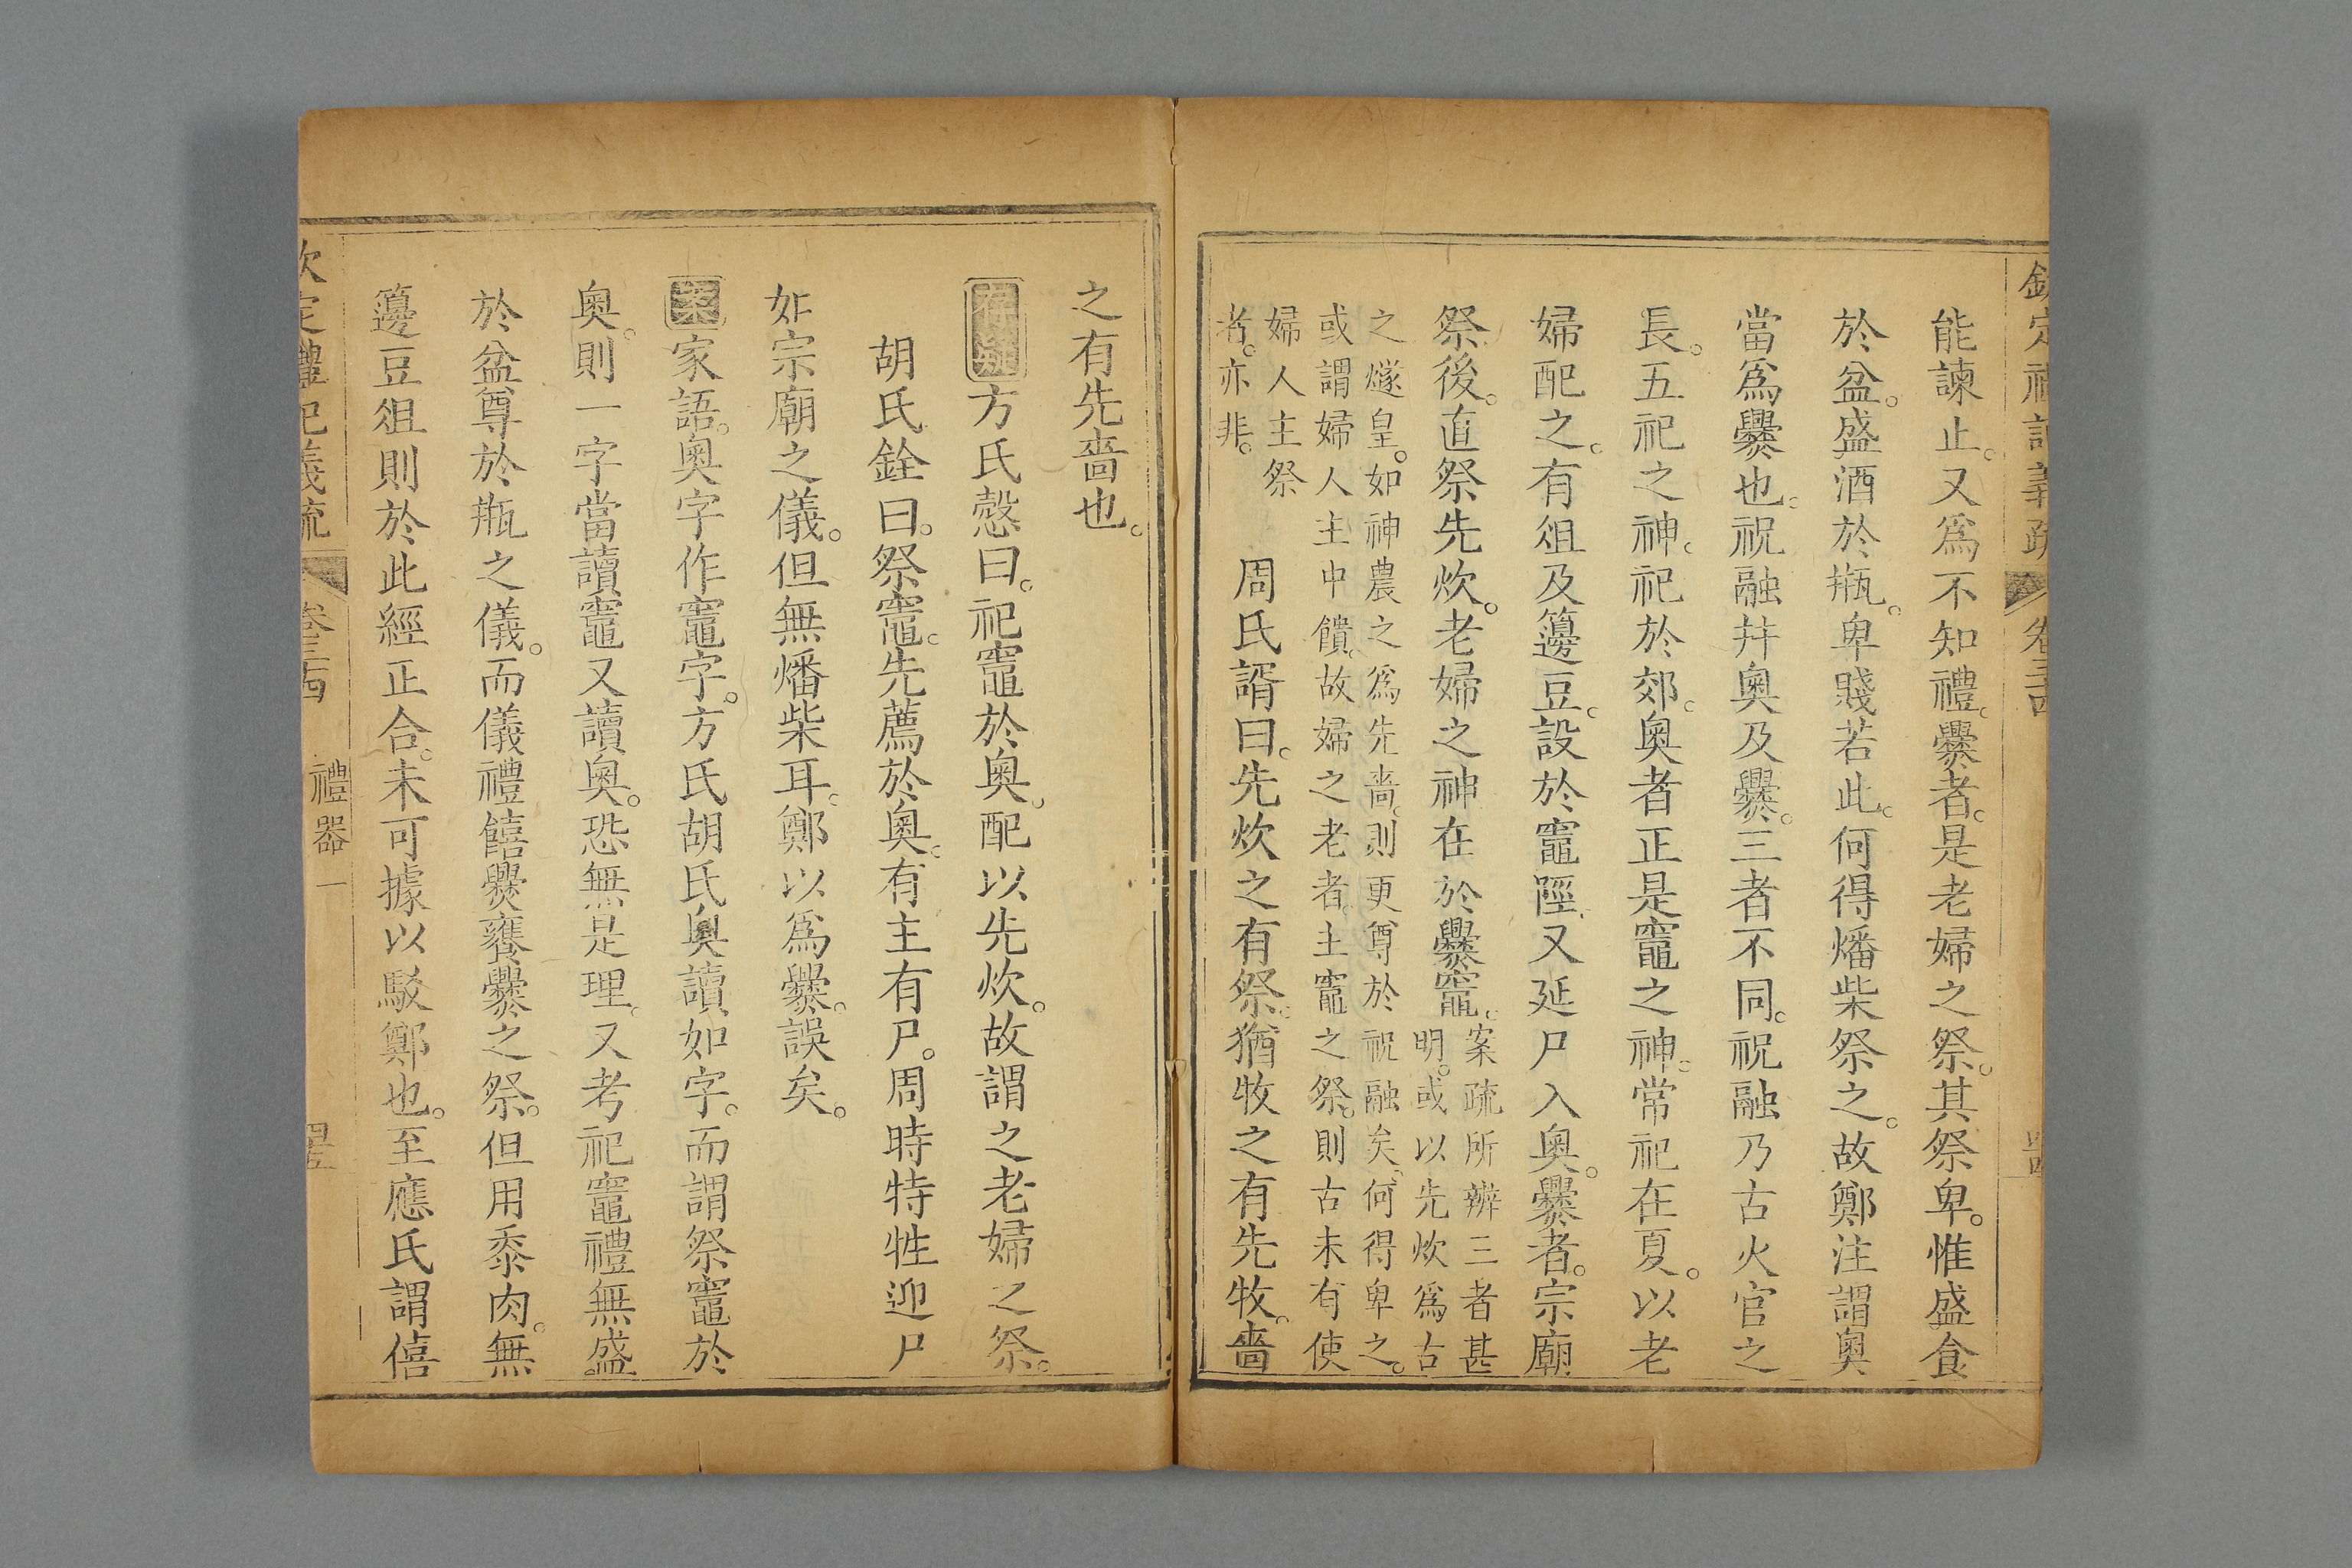 欽定禮記義疏 卷三十四
能諫止。又爲不知禮。爨者。是老婦之祭。其祭卑。惟盛食
於盆。盛酒於瓶。卑賤若此。何得燔柴祭之。故鄭注謂奧
當爲爨也。祝融幷奧及爨。三者不同。祝融乃古火官之
長。五祀之神。祀於郊。奧者正是竈之神。常祀在夏。以老
婦配之。有俎及籩豆。設於竈陘。又延尸入奧。爨者。宗廟
祭後。直祭先炊。老婦之神在於爨竈。
案疏所辨三者甚
明。或以先炊爲古
之燧皇。如神農之爲先嗇。則更尊於祝融矣。何得卑之。
或謂婦人主中饋。故婦之老者。主竈之祭。則古未有使
婦人主祭
者。亦非。
周氏諝曰。先炊之有祭。猶牧之有先牧。嗇
之有先嗇也。
存疑方氏慤曰。祀竈於奧。配以先炊。故謂之老婦之祭。
胡氏銓曰。祭竈。先薦於奧。有主有尸。周時特牲迎尸
如宗廟之儀。但無燔柴耳。鄭以爲爨。誤矣。
案家語。奧字作竈字。方氏胡氏奧讀如字。而謂祭竈於
奧。則一字當讀竈又讀奧。恐無是理。又考祀竈禮無盛
於盆尊於瓶之儀。而儀禮饎爨饔爨之祭。但用黍肉。無
籩豆俎則於此經正合。未可據以駁鄭也。至應氏謂僖
欽定禮記義疏 卷三十四 禮器一